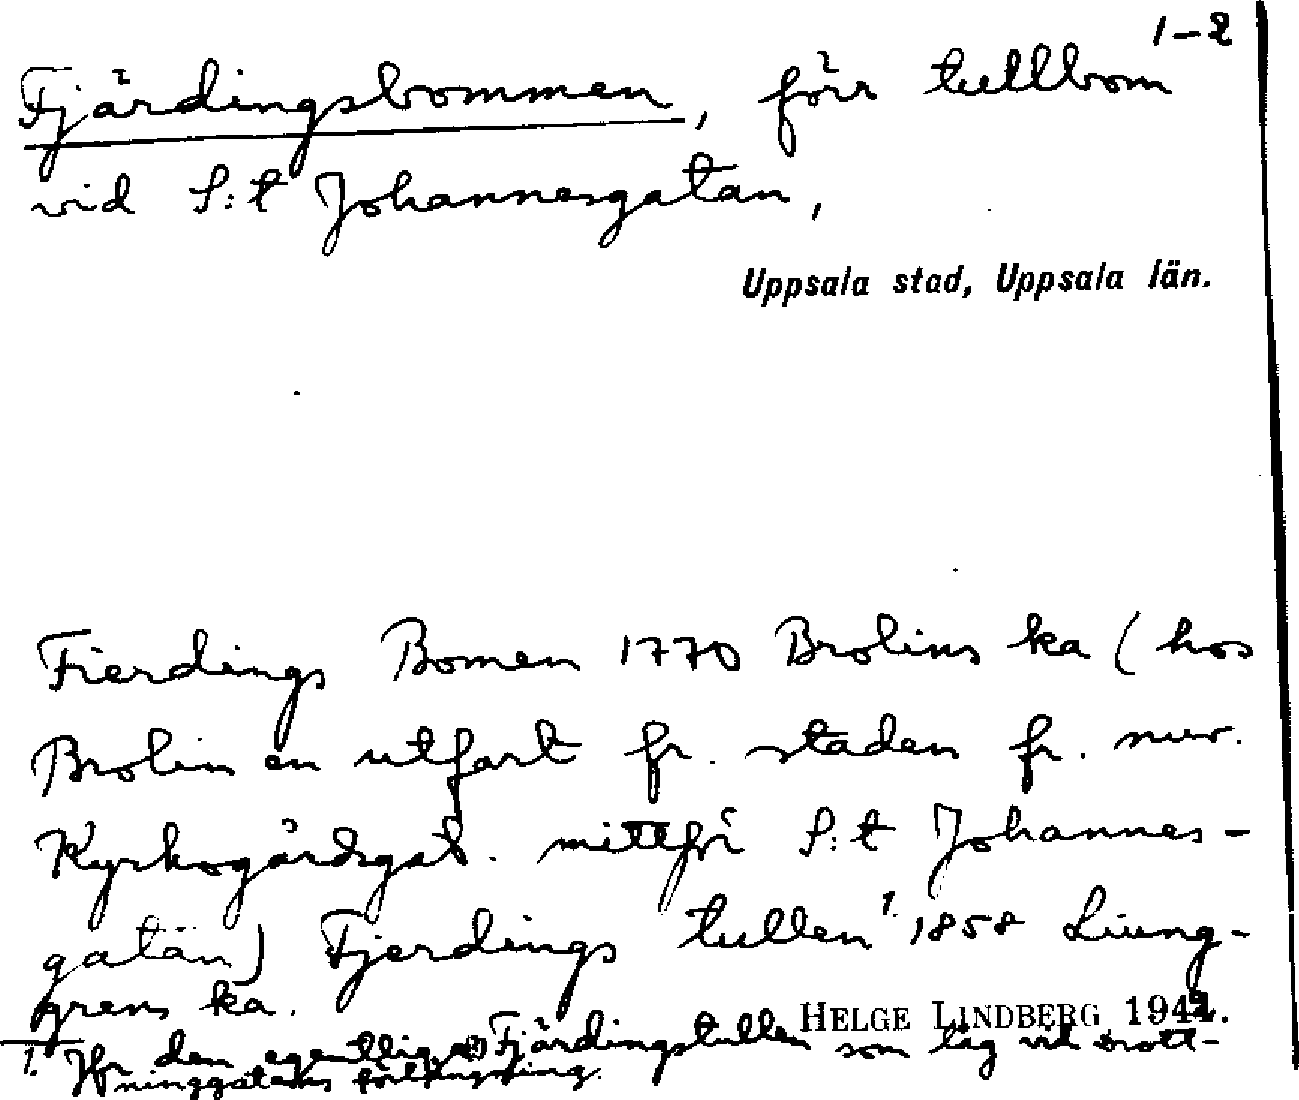 1–2
Fjärdingsbommen, förr tullbom
vid S:t Johannesgatan,
Uppsala stad, Uppsala län.
Fierdings Bomen 1770 Brolins ka (hos
Brolin en utfart fr. staden fr. nuv.
Kyrkogårdsgat. mittför S:t Johannes-
gatan) Fjerdings tullen 1. 1858 Liung-
grens ka.
HELGE LINDBERG 1942.
1. Jfr den egentliga Fjärdingstullen som låg vid Drott-
ninggatans förlängning.